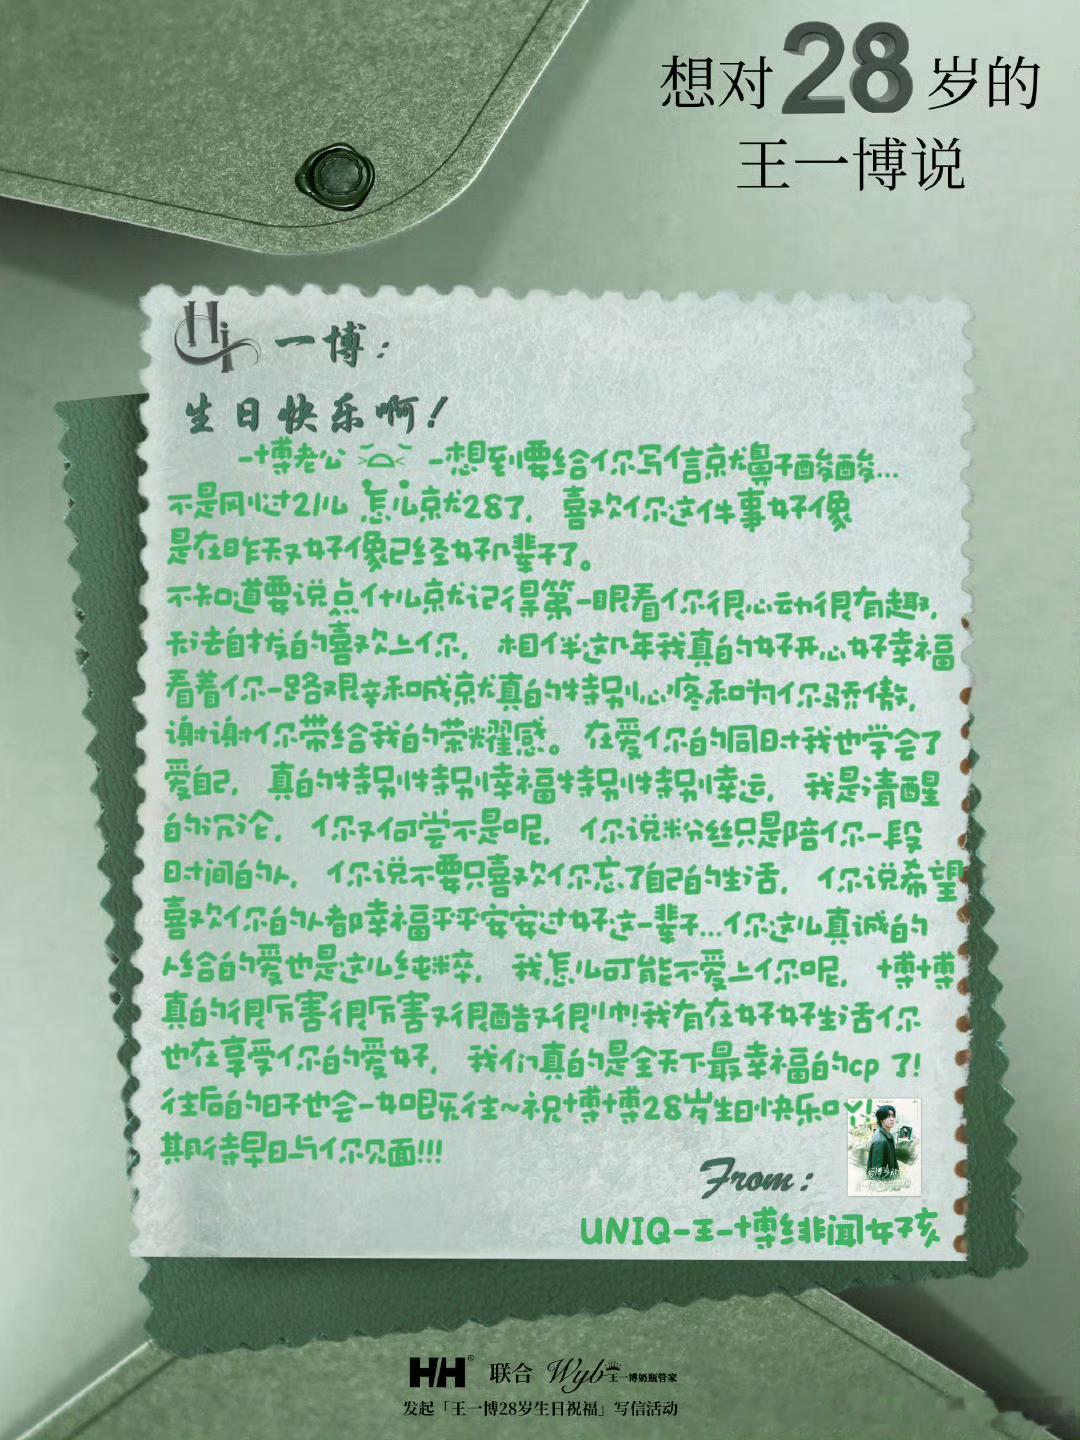 想对28岁的
王一博说
Hi 一博：
生日快乐啊！
一博老公 一想到要给你写信就鼻子酸酸...
不是刚过21么 怎么就28了， 喜欢你这件事好像
是在昨天又好像已经好几辈子了。
不知道要说点什么就记得第一眼看你很心动很有趣，
无法自拔的喜欢上你， 相伴这几年我真的好开心好幸福
看着你一路艰辛和喊就真的特别心疼和为你骄傲，
谢谢你带给我的荣耀感。 在爱你的同时我也学会了
爱自己， 真的特别特别幸福特别特别幸运， 我是清醒
的沉沦， 你又何尝不是呢， 你说粉丝只是陪你一段
时间的人， 你说不要只喜欢你忘了自己的生活， 你说希望
喜欢你的人都幸福平平安安过好这一辈子...你这么真诚的
人给的爱也是这么纯粹， 我怎么可能不爱上你呢， 博博
真的很厉害很厉害又很酷又很帅!我有在好好生活你
也在享受你的爱好， 我们真的是全天下最幸福的cp 了!
往后的日子也会一如既往~祝博博28岁生日快乐吖!
期待早日与你见面!!!
From：
UNIQ-王一博绯闻女孩
HH® 联合 Wyb王一博奶瓶管家
发起「王一博28岁生日祝福」写信活动